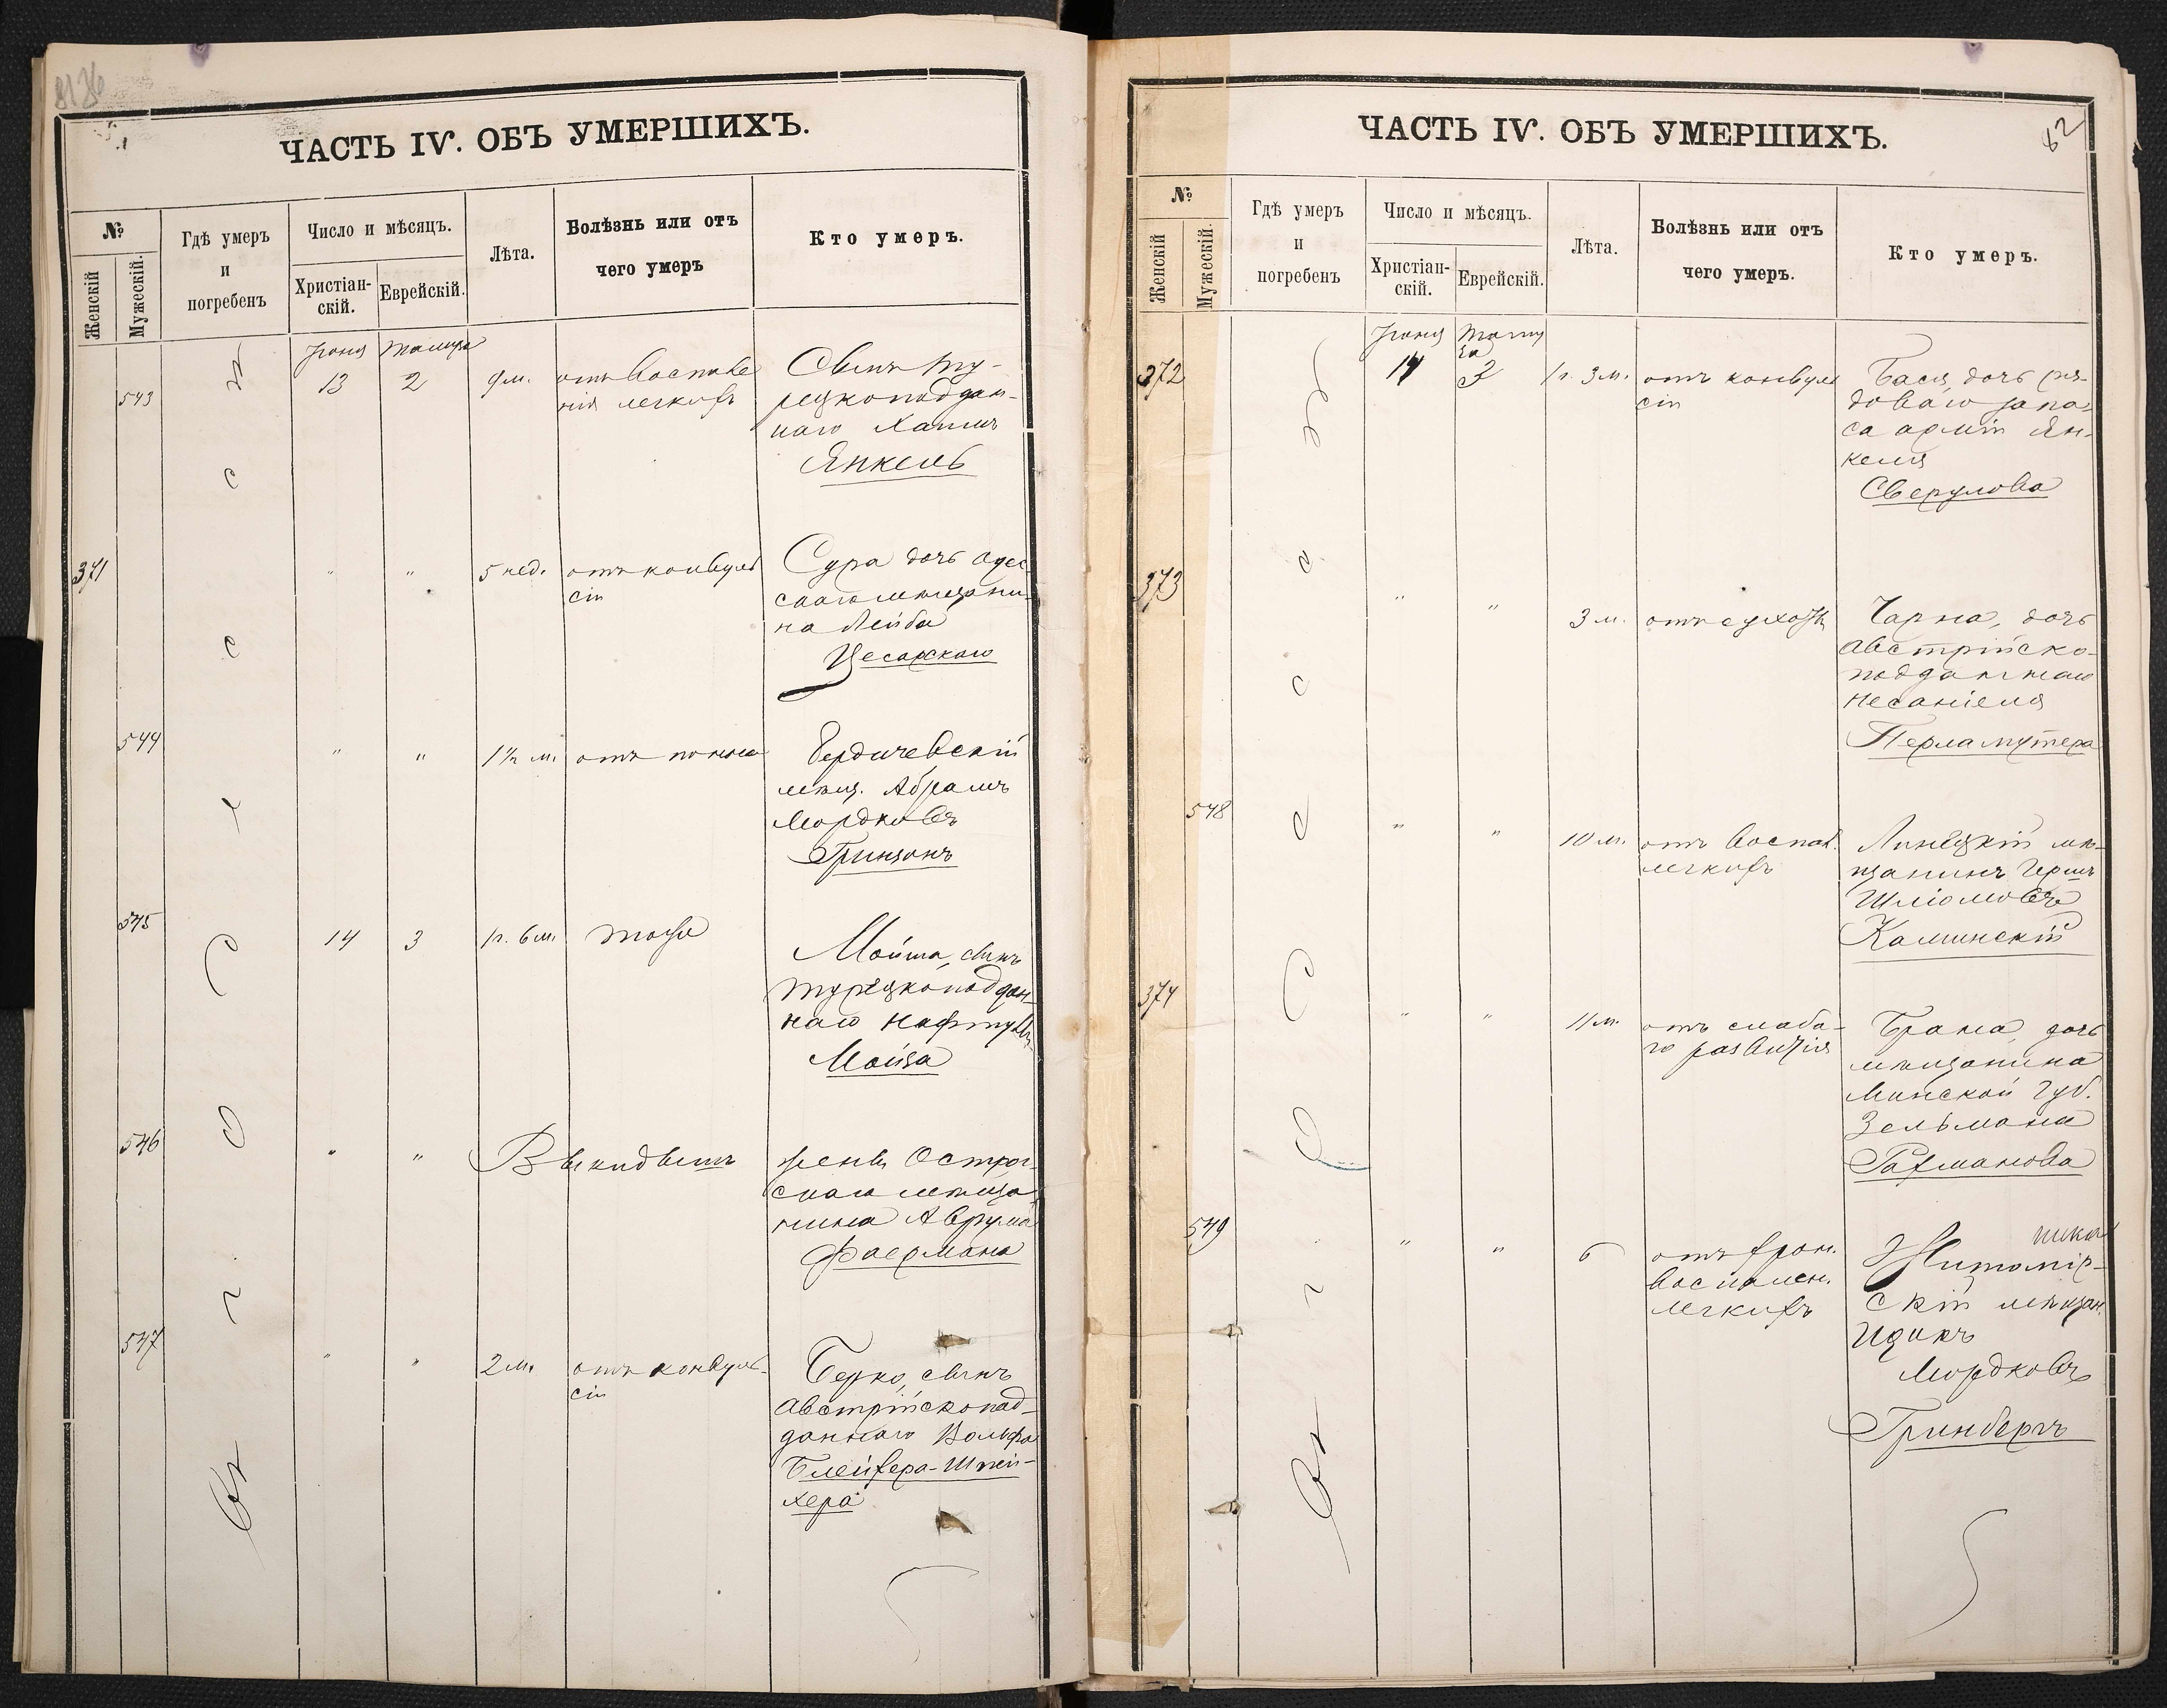 ЧАСТЬ IV. ОБЪ УМЕРШИХЪ.
№
Женскій
Мужескій.
Гдѣ умеръ
и
погребенъ
Число и мѣсяцъ.
Христіан-
скій.
Еврейскій.
Лѣта.
Болѣзнь или отъ
чего умеръ
Кто умеръ.
Іюня
Тамуза
543
13
2
9 м.
отъ воспале
нія легкихъ
Сынъ ту-
рецкоподдан-
наго Хаимъ
Янкель
371
"
"
5 нед.
отъ конвуль
сіи
Сура дочь одес-
скаго мѣщани-
на Лейба
Цесарскаго
544
"
"
1½ м.
отъ поноса
Бердичевскій
мѣщ. Абрамъ
Мордковъ
545
14
3
1 г. 6 м.
тоже
Мойша, сынъ
турецкоподдан-
наго Нафтулы
Мойза
546
"
"
Выкидышъ
жены Острог-
скаго мѣща
нина Аврума
Фаермана
547
"
"
2 м.
отъ конвуль-
сіи
Берко, сынъ
Австрійскопод-
даннаго Вольфа
Блейфера-Шпей-
хера
Одесса
ЧАСТЬ IV. ОБЪ УМЕРШИХЪ.
62
№
Женскій
Мужескій.
Гдѣ умеръ
и
погребенъ
Число и мѣсяцъ.
Христіан-
скій.
Еврейскій.
Лѣта.
Болѣзнь или отъ
чего умеръ.
Кто умеръ.
Іюня
Таму
за
372
14
3
1 г. 3 м.
отъ конвуль
сіи
Бася, дочь ря-
доваго запа-
са арміи Ян-
келя
Сверулова
373
"
"
3 м.
отъ сухотк
Чарна, дочь
Австрійско-
подданнаго
Несаніеля
Перламутера
548
"
"
10 м.
отъ воспал.
легкихъ
Линецкій мѣ-
щанинъ Герш
Шліомовъ
Каминскій
374
"
"
11 м.
отъ слаба-
го развитія
Брана, дочь
мѣщанина
Минской губ.
Зельмана
Рахманова
549
"
"
6
отъ хрон.
воспален.
легкихъ
Житомір-
скій мѣщан.
Ицикъ
Мордковъ
Гринбергъ